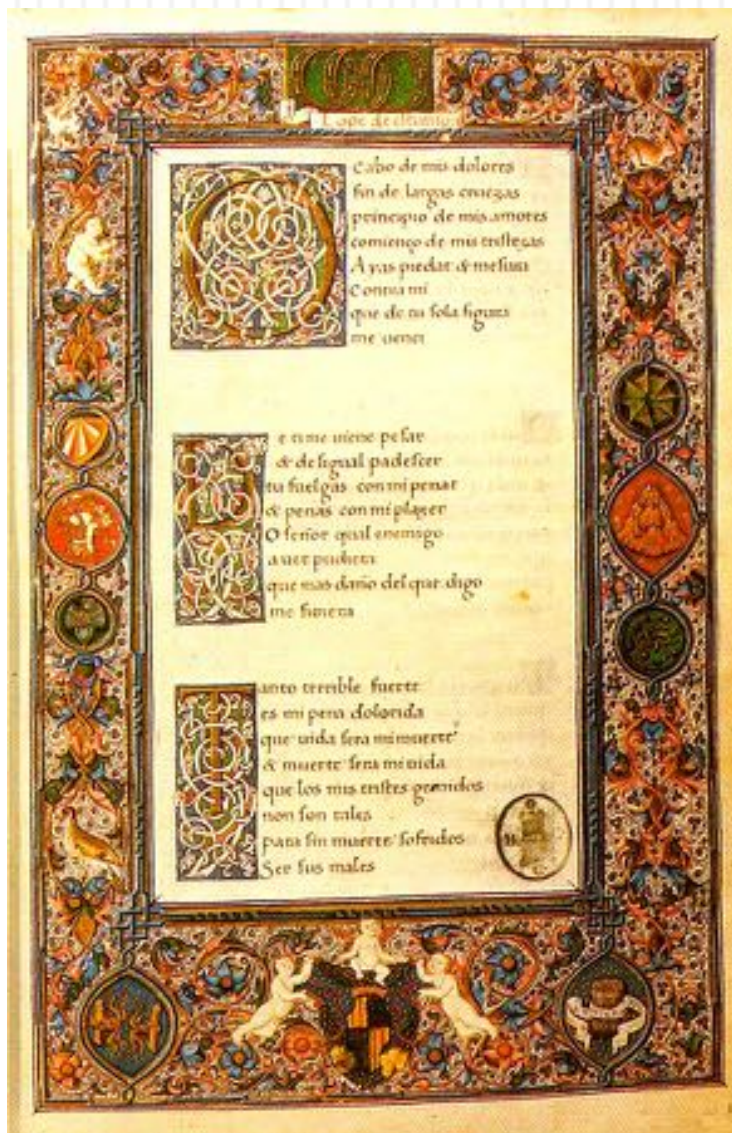 Lope de estuniga
O cabo de mis dolores
fin de largas cruezas
principio de mis amores
comienço de mis tristezas
Ayas piedat & mesura
contra mi
que de tu sola figura
me uenci
De ti me uiene pesar
& desigual padescer
tu fuelgas con mi penar
& penas con mi plazer
O señor qual enemigo
auer pudiera
que mas daño del que digo
me fiziera
Tanto terrible fuerte
es mi pena dolorida
que uida sera mi muerte
& muerte sera mi uida
que los mis tristes gemidos
non son tales
para sin muerte sofridos
Ser sus males